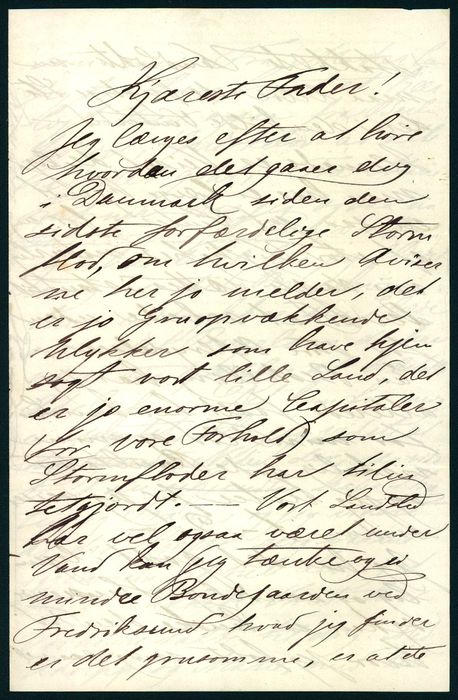 Kjæreste Fader!
Jeg længes efter at höre
hvordan det gaaer dog
i Danmark siden den
sidste forfærdelige Storm
flod, om hvilken Aviser
ne her jo melder, det
er jo Gruopvækkende
Ulykker som have hjem
søgt vort lille Land, det
er jo enorme Capitaler
for vore Forhold som
Stormfloder har tilin
tetgjordt. — Vort Landsted
har vel ogsaa været under
Vand kan jeg tænke og ei
mindre Bondegaarden ved
Fredriksund, hvad jeg finder
er det grusomme, er at de